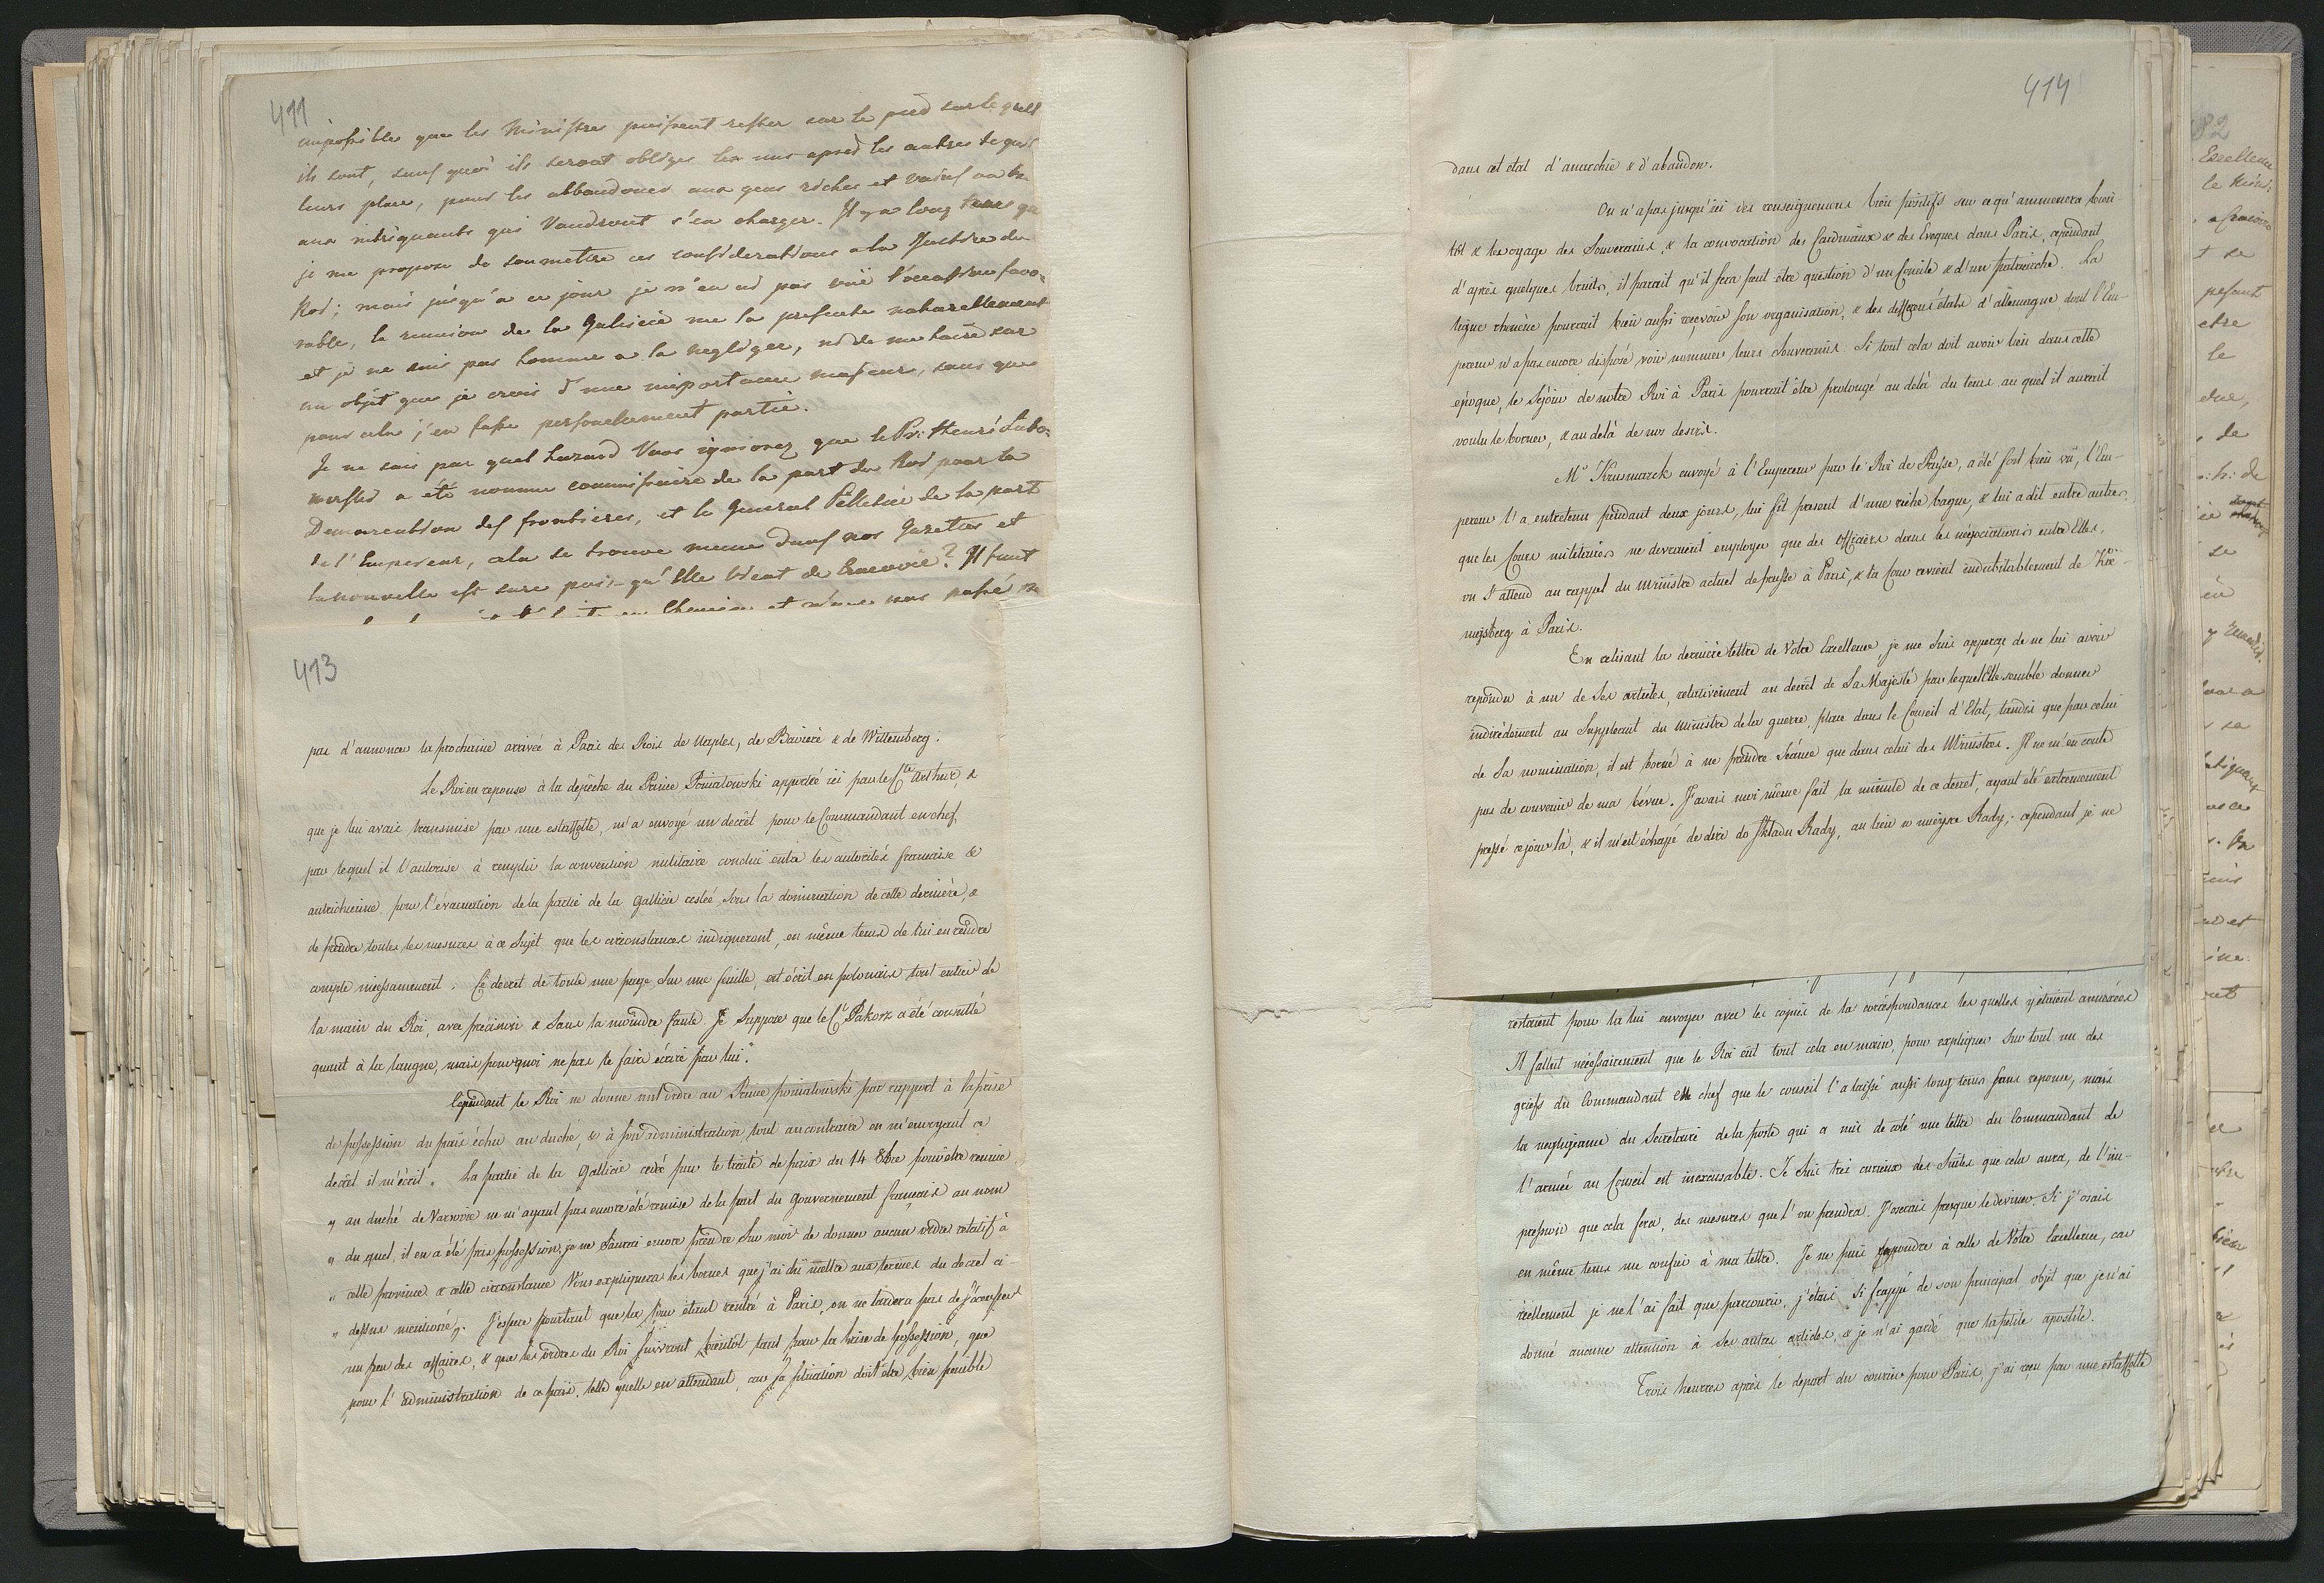 411
impossible que les Ministres puissent rester sur le pied sur le quell
ils sont, sauf quoi ils seront obliges les uns apred les autres de quit
leurs place, pour les abbandoner aux gens riches et
aux intriguants qui Voudront s'en charger. Il y a long tems que
je me propose de soumettre ces considerations a la Justice du
Roi; mais jusqu'a ce jour je n'en ai pas eu l'occasion favo-
rable, la reunion de la Galicie me la presente naturellement
et je ne suis pas homme a la negliger, ni de me taire sur
un objet que je crois d'une importance majeure, sans que
pour cela j'en fasse personellement partie.
Je ne sais par quel hazard Vous ignorez que le Pce Henri Lubo-
mirski a été nommé commissaire de la part du Roi pour la
Demarcation des frontieres, et le General Pelletier de la part
de l'Empereur, cela se trouve meme dans nos Gazettes et
la nouvelle est sure puis-qu'Elle vient de Cracovie? Il faut
413
pas d'annoncer la prochaine arrivée à Paris des Rois de Naples, de Baviere & de Wittemberg.
Le Roi en reponse à la dépêche du Prince Poniatowski apportée ici par le Cte Arthur, &
que je lui avais transmise par une estaffette, m'a envoyé un decrêt pour le Commandant en chef,
par lequel il l'autorise à remplir la convention militaire conclue entre les autorités francaise &
autrichienne pour l'évacuation de la partie de la Gallicie restée sous la domination de cette derniere, &
de prendre toutes les mesures à ce sujet que les circonstances indiqueront, en même tems de lui en rendre
compte incessamment. Ce decret de toute une page sur une feuille, est écrit en polonais tout entier de
la main du Roi, avec précision & sans la moindre faute. Je suppose que le Ct Pakosz a été consulté
quant à la langue, mais pourquoi ne pas le faire écrire par lui?
Cependant le Roi ne donne nul ordre au Prince poniatowski par rapport à la prise
de possession du païs échu au duché, & à son administration, tout au contraire en m'envoyant ce
decrêt il m'écrit „ La partie de la Gallicie cedée par le traité de paix du 14 8bre pour être reunie
„ au duché de Varsovie ne m'ayant pas encore été remise de la part du gouvernement français au nom
„ du quel, il en a été pris possession, je ne saurai encore prendre sur moi de donner aucun ordre relatif à
„ cette province & cette circonstance Vous expliquera les bornes que j'ai dû mettre aux termes du decret ci-
„ dessus mentioné„. J'espere pourtant que la Cour étant rentré à Paris, on ne tardera pas de s'occuper
un peu des affaires, & que les ordres du Roi suivront bientôt tant pour la prise de possession, que
pour l'administration de ce païs, telle quelle en attendant, car sa situation doit être bien penible
414
dans cet état d'anarchie & d'abandon.
On n'a pas jusqu'ici des renseignemens bien positifs sur ce qu'ammenera bien-
tôt & le voyage des Souverains, & la convocation des Cardinaux & des Eveques dans Paris, cependant
d'après quelques bruits, il parait qu'il sera peut être question d'un Concile & d'un patriarche. La
ligue rhenène pourrait bien aussi reçevoir son organisation, & des differens états d'allemagne dont l'Em-
pereur n'a pas encore disposé voir nommer leurs Souverains. Si tout cela doit avoir lieu dans cette
epoque, le séjour de notre Roi à Paris pourrait être prolongé au delà du tems au quel il aurait
voulu le borner, & au delà de nos desirs.
Mr Krusmarck envoyé à l'Empereur par le Roi de Prusse, a été fort bien vû, l'Em-
pereur l'a entretenu pendant deux jours, lui fit present d'une riche bague, & lui a dit entre autres
que les Cours militaires ne devraient employer que des officiers dans les negociations entre Elles,
on s'attend au rappel du Ministre actuel de prusse à Paris, & la Cour revient indubitablement de Kœ-
nigsberg à Paris.
En relisant la derniere lettre de Votre Excellence, je me suis apperçu de ne lui avoir
repondu à un de ses articles, relativement au decrêt de Sa Majesté par lequel Elle semble donner
indirectement au Suppleant du Ministre de la guerre, place dans le Conseil d'Etat, tandis que par celui
de sa nomination, il est borné à ne prendre séance que dans celui des Ministres. Il ne m'en coute
pas de convenir de ma bévue. J'avais moi même fait la minute de ce decret, ayant été extremement
pressé ce jour là, & il m'est échappé de dire do składu Rady, au lieu w mieysce Rady; cependant je ne
restaient pour la lui envoyer avec les copies de la correspondances les quelles y étaient annexées
Il fallut nécessairement que le Roi eût tout cela en main, pour expliquer sur tout un des
griefs du Commandant en chef que le conseil l'a laissé aussi long tems sans reponse, mais
la negligeance du Secretaire de la poste qui a mis de coté une lettre du Commandant de
l'armée au Conseil est inexcusable. Je suis très curieux des suites que cela aura, de l'im-
pression que cela fera, des mesures que l'on prendra. J'oserais presque le deviner. Si j'osais
en même tems me confier à ma lettre. Je ne puis repondre à celle de Votre Excellence, car
réellement je ne l'ai fait que parcourir, j'étais si frappé de son principal objet que je n'ai
donné aucune attention à ses autres articles, & je n'ai gardé que la petite apostile.
Trois heures après le depart du courier pour Paris, j'ai reçu par une estaffette
82
Excellence
le
pesant
etre
le
de
se
y